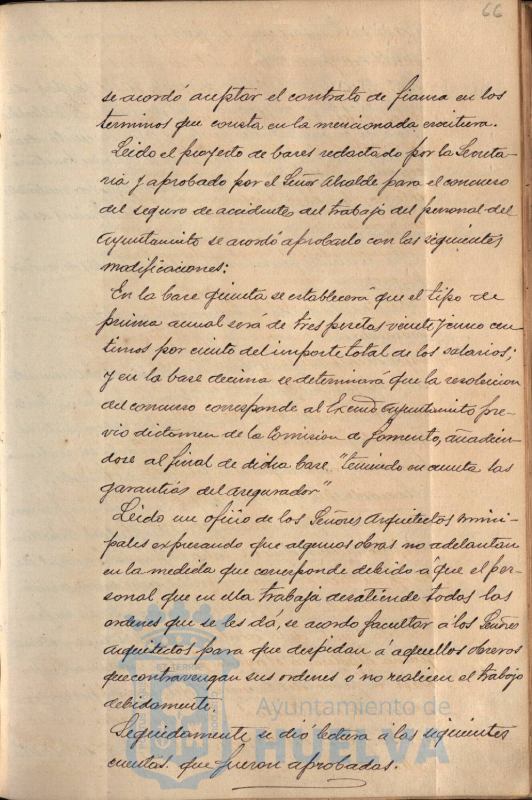 66
se acordó aceptar el contrato de fianza en los
terminos que consta en la mencionada escritura.
Leido el proyecto de bases redactado por la Secreta-
ria y aprobado por el Señor Alcalde para el concurso
del seguro de accidentes del trabajo del personal del
Ayuntamiento se acordó aprobarlo con las siguientes
modificaciones:
En la base quinta se establecerá que el tipo de
prima anual será de tres pesetas veinte y cinco cen-
timos por ciento del importe total de los salarios;
y en la base decima se determinará que la resolucion
del concurso corresponde al Excmo Ayuntamiento pre-
vio dictamen de la Comision de Fomento, añadien-
dose al final de dicha base "teniendo en cuenta las
garantias del asegurador"
Leido un oficio de los Señores Arquitectos muni-
pales expresando que algunas obras no adelantan
en la medida que corresponde debido á que el per-
sonal que en ella trabaja desatiende todas las
ordenes que se les dá, se acordo facultar á los Señores
arquitectos para que despidan á aquellos obreros
que contravengan sus ordenes ó no realicen el trabajo
debidamente.
Seguidamente se dió lectura á las siguientes
cuentas que fueron aprobadas.
Ayuntamiento de
HUELVA